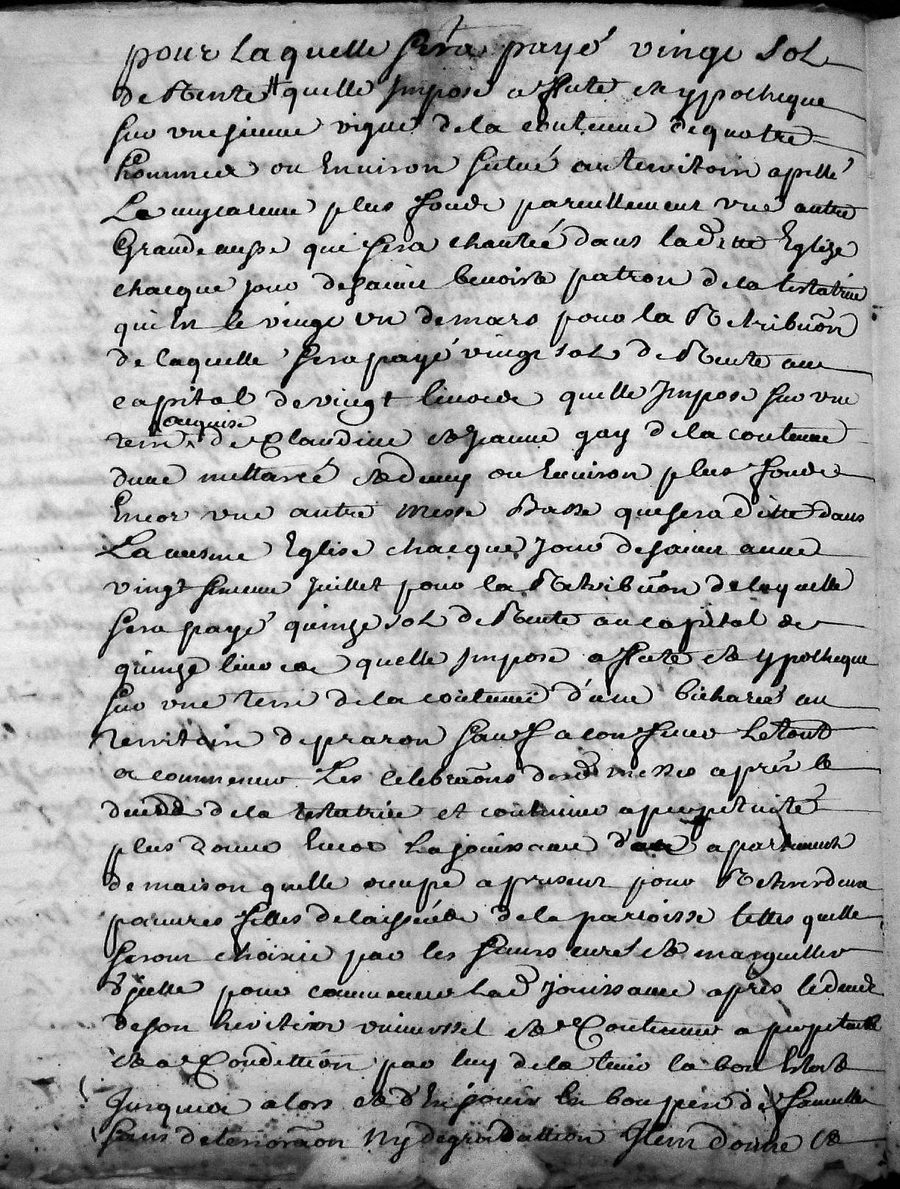 pour Laquelle sera payé vingt sol
de Rente quelle Impose affecte et ypotheque
sur une sienne vigne de la contenue de quatre
hommée ou Environ situé au territoire apellé
La plus fonde pareillement une autre
Grande ausse qui sera chantée dans lad. itte Eglize
chacque jour de saint benoist patron de la testatrice
qui Est le vingt un de mars pour la Retribuon
de laquelle sera payé vingt sol de Rente au
capital de vingt livre quelle Impose sur une
terre acquise de Claudine et jeanne gay de la contenue
dune mettareé et demy ou Environ plus fonde
Encor une autre Messe Basse que sera ditte dans
La mesme Eglise chacque Jour de sainte anne
vingt sixieme Juillet pour la Retribuon de laquelle
sera payé quinze sol de Rente au capital de
quinze livre quelle Impose affecte et ypotheque
sur une terre de la contenue d'une bichareé au
territoire de praron sauf a confiner Le tout
a commencer Les celebraons desd. messes apres le
deced de la testatrice et continuer a perpetuité
plus donne Encor La jouissance d'un apartement
de maison quelle occupe a present pour Retirer deux
pauvres filles delaisseé de la paroisse telles quelle
seront choisie par les sieurs curé et marguillier
d'jcelle pour commencer lad. jouissance apres le deced
de son heritier universel et Continuer a perpetuité
et a Condition par luy de la tenir la bon Estat
Jusques a lors et d'En jouir En bon pere de famille
sans deterioraon ny degradattion Item donne et